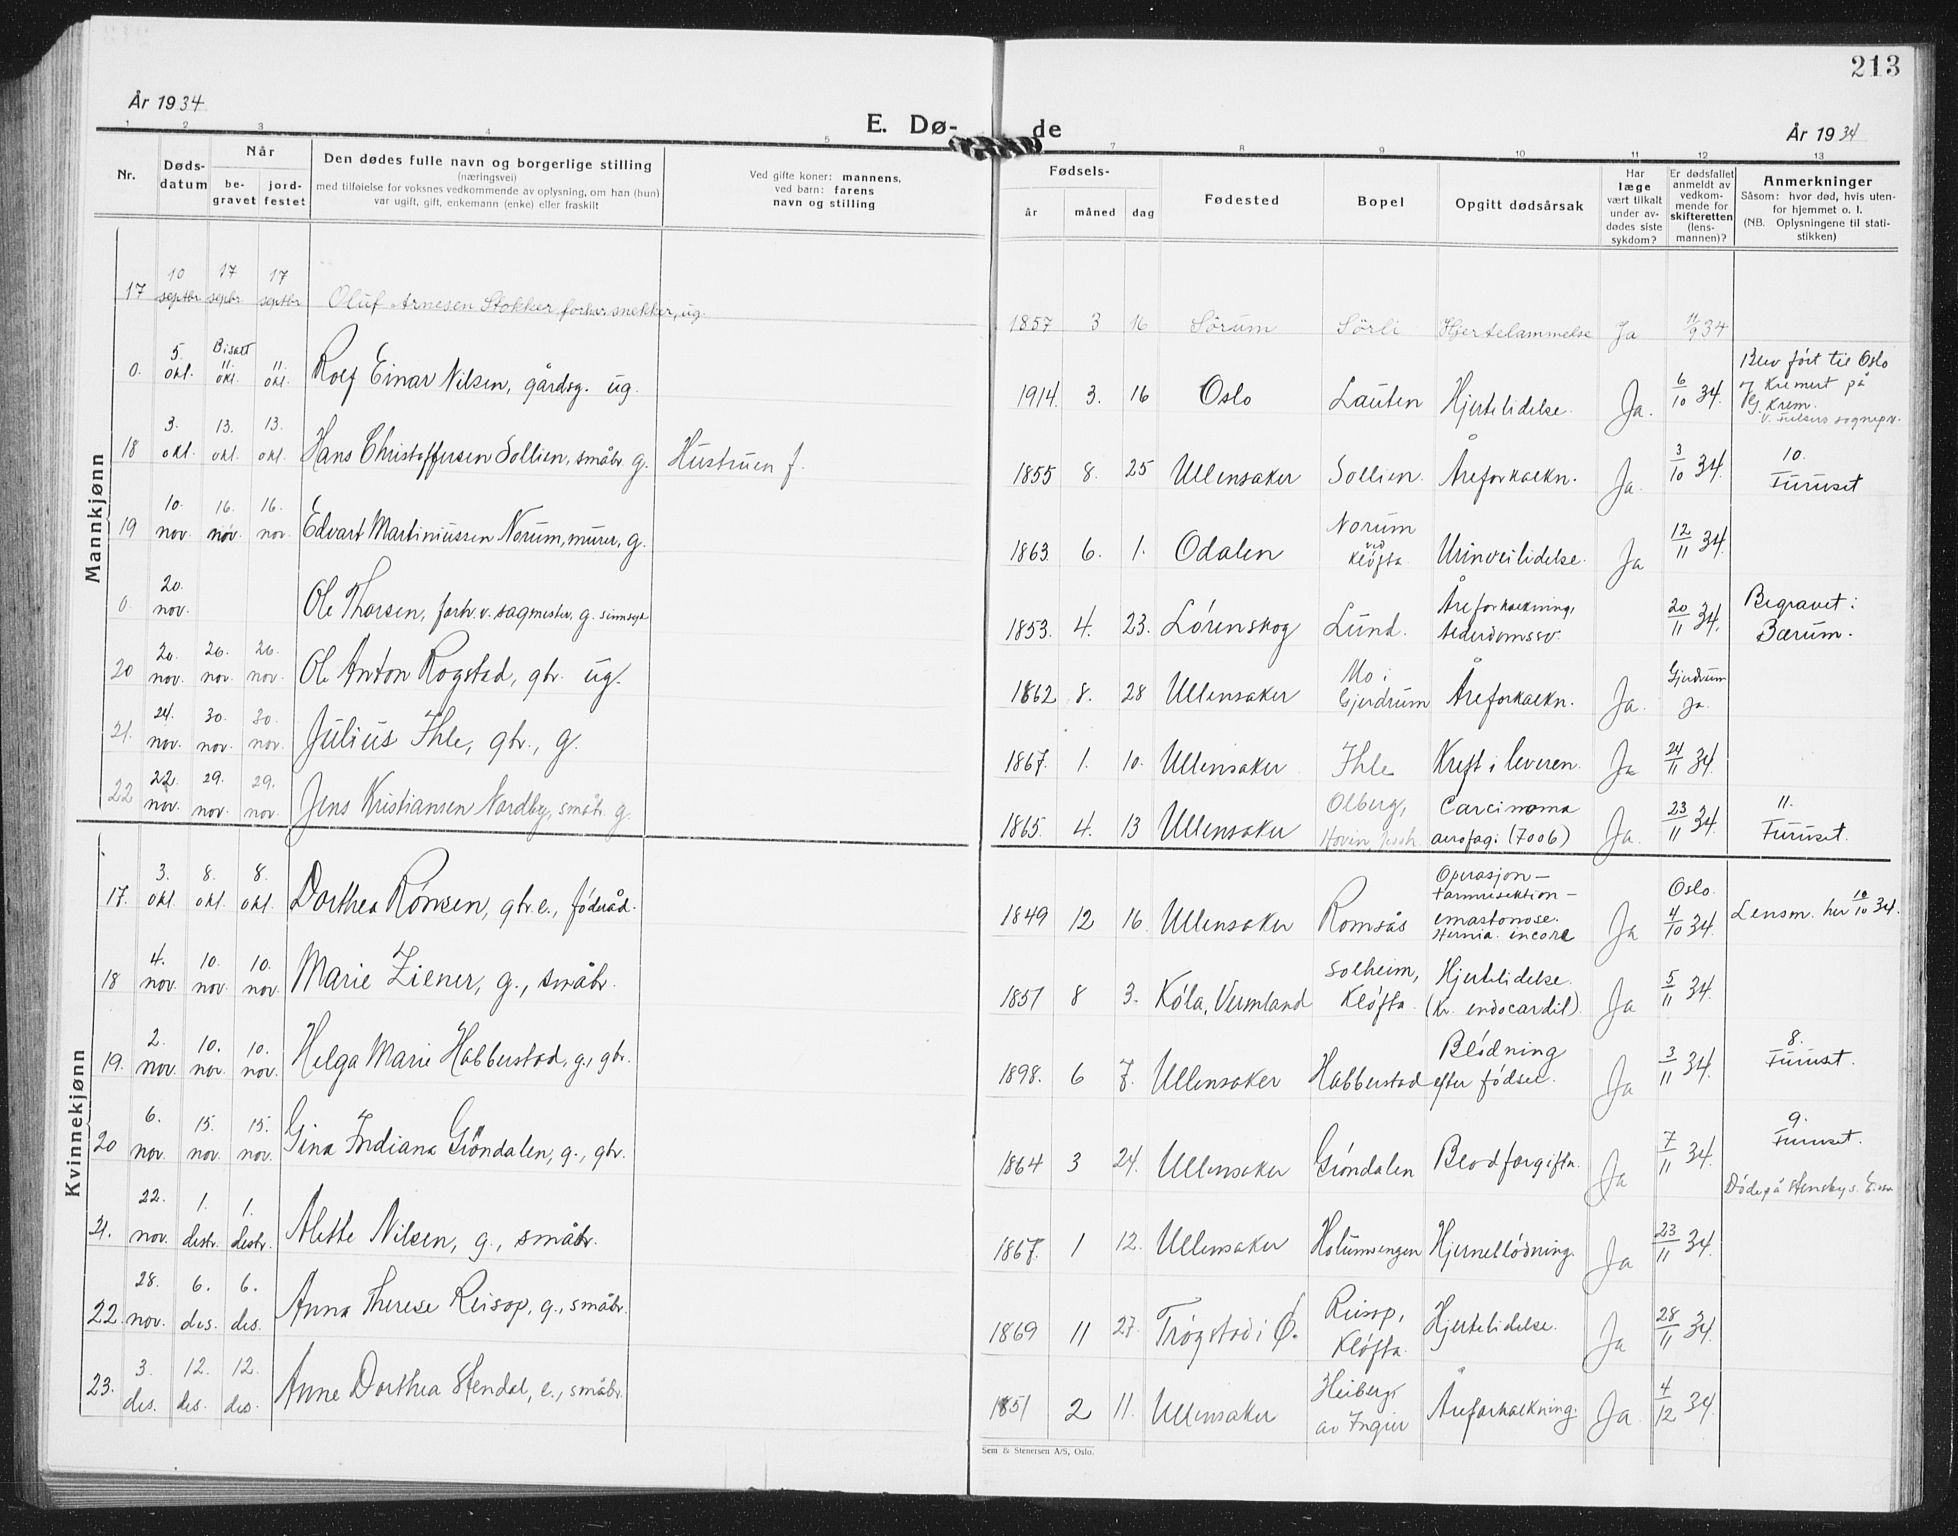 213
År 1934
E. Døde
År 1934
1 2 3 4 5 7 8 9 10 11 12 13
Nr.
Dødsdatum
Når
begravet
jordfestet
Den dødes fulle navn og borgerlige stilling
(næringsvei)
med tilføielse for voksnes vedkommende av oplysning, om han (hun)
var ugift, gift, enkemann (enke) eller fraskilt
Ved gifte koner: mannens,
ved barn: farens
navn og stilling
Fødsels-
år måned dag
Fødested
Bopel
Opgitt dødsårsak
Har
læge
vært tilkalt
under avdødes siste
sykdom?
Er dødsfallet
anmeldt av
vedkommende for
skifteretten
(lensmannen)?
Anmerkninger
Såsom: hvor død, hvis utenfor hjemmet o. l.
(NB. Oplysningene til statistikken)
Mannkjønn
17 10 septbr 17 septbr 17 septbr Oluf Arnesen Stokker forhv. snekker, ug. 1857 3 16 Sörum Sörli Hjertelammelse Ja 11/9 34
0. 5. okt. Bisatt 11. okt. 11. okt. Rolf Einar Nilsen, gårdsg. ug. 1914. 3. 16 Oslo Lauten Hjertelidelse. Ja. 6/10 34. Blev ført til Oslo
Kremert på
Krem.
18 3. okt. 13. okt. 13. okt. Hans Christoffersen Sollien, småbr. g. Hustruen f. 1855 8. 25 Ullensaker Sollien. Åreforkalkn. Ja. 3/10 34. 10. Furuset
19 10. nov. 16. nov. 16. nov. Edvart Martiniussen Norum, murer, g. 1863. 6. 1. Odalen Norum ved Kløfta Urinveilidelse. Ja 12/11 34.
0. 20. nov. Ole Thorsen, forhv. sagmester, g. sinnssyk 1853. 4. 23. Lørenskog Lund. Åreforkalkning, Alderdomssv. 20/11 34. Begravet i Bærum.
20 20. nov. 26. nov. 26. nov. Ole Anton Rogstad, gbr. ug. 1862 8. 28 Ullensaker Mo i Gjerdrum Åreforkalkn. Ja. Gjerdrum Ja.
21. 24. nov. 30. nov. 30. nov. Julius Ihle, gbr., g. 1867. 1. 10. Ullensaker Ihle Kreft i leveren. Ja 24/11 34.
22 22. nov. 29. nov. 29. nov. Jens Kristiansen Nordby, småbr. g. 1865. 4. 13 Ullensaker Olberg, Hovin Carcinoma (7006) Ja. 23/11 34. 11. Furuset.
Kvinnekjønn
17. 3. okt. 8. okt. 8. okt. Dorthea Rönsen, gbr.e., föderåd. 1849 12 16. Ullensaker Romsås Operasjon - Ja Oslo. 4/10 34. Lensm. her 10/10 34.
18 4. nov. 10. nov. 10. nov. Marie Ziener, g., småbr. 1851 8 3. Köla, Vermland Solheim, Kløfta. Hjertelidelse. (Kr. endocardit). Ja 5/11 34.
19. 2. nov. 10. nov. 10. nov. Helga Marie Habberstad, g., gbr. 1898. 6 7. Ullensaker Habberstad Blødning efter fødsel. Ja 3/11 34. 8. Furuset.
20 6. nov. 15. nov. 15. nov. Gina Indiana Gröndalen, g., gbr. 1864 3 24. Ullensaker Gröndalen Blodforgiftn. Ja 7/11 34. 9. Furuset.
Döde på Stensby s.
21. 22. nov. 1. desbr. 1. desbr. Alette Nilsen, g., småbr. 1867. 1 12. Ullensaker Holumsengen Hjerneblødning. Ja 23/11 34.
22. 28. nov. 6. des. 6. des. Anna Therese Reisop, g., småbr. 1869 11 27. Trøgstad i Ø. Reisop, Kløfta. Hjertelidelse. Ja 28/11 34.
23. 3. des. 12. des. 12. des. Anne Dorthea Stendal, e., småbr. 1851 2 11. Ullensaker Heiberg av Ingier Åreforkalkning. Ja. 4/12 34.
Sem & Stenersen A/S, Oslo.